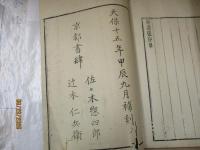 天保十五年甲辰九月補刻
京都書肆
佐々木惣四郎
辻本仁兵衛